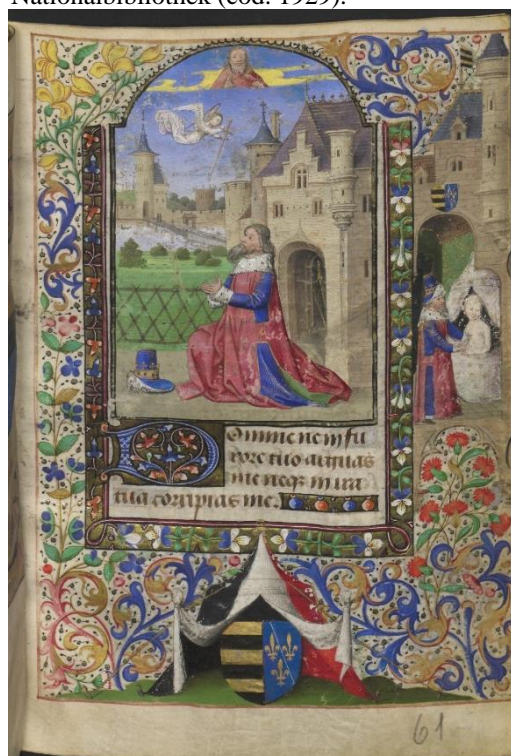 Nationalbibliothek (cod. 1929).
Domine ne in fu
rore tuo arguas
me neqꝫ in ira
tua corripias me.
61